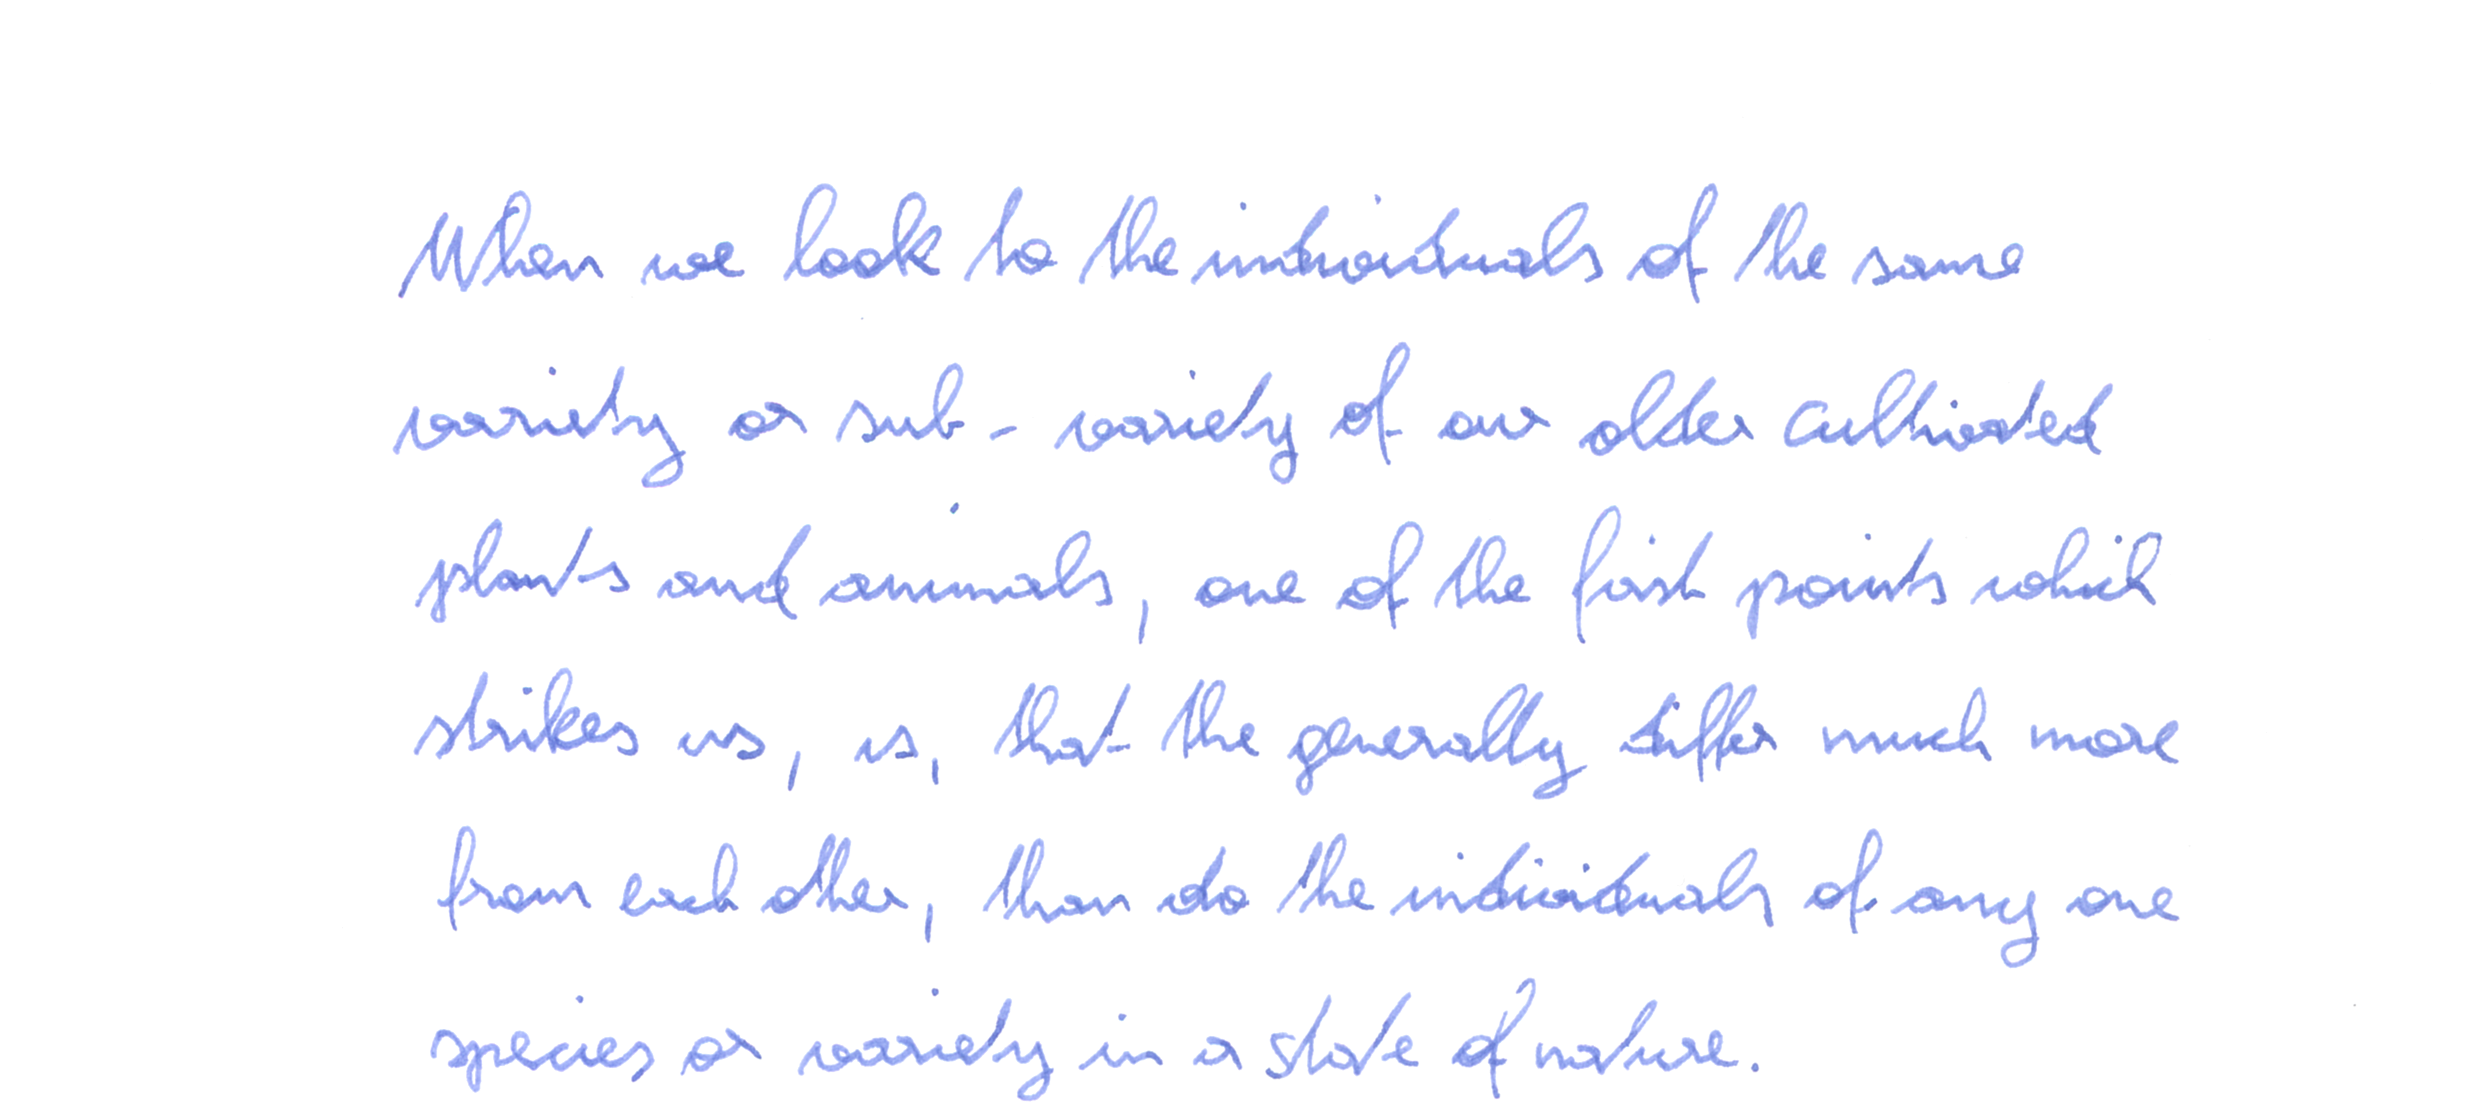 When we look to the individuals of the same
variety or sub-variety of our older cultivated
plants and animals, one of the first points which
strikes us, is, that the generally differ much more
from each other, than do the individuals of any one
species or variety in a state of nature.